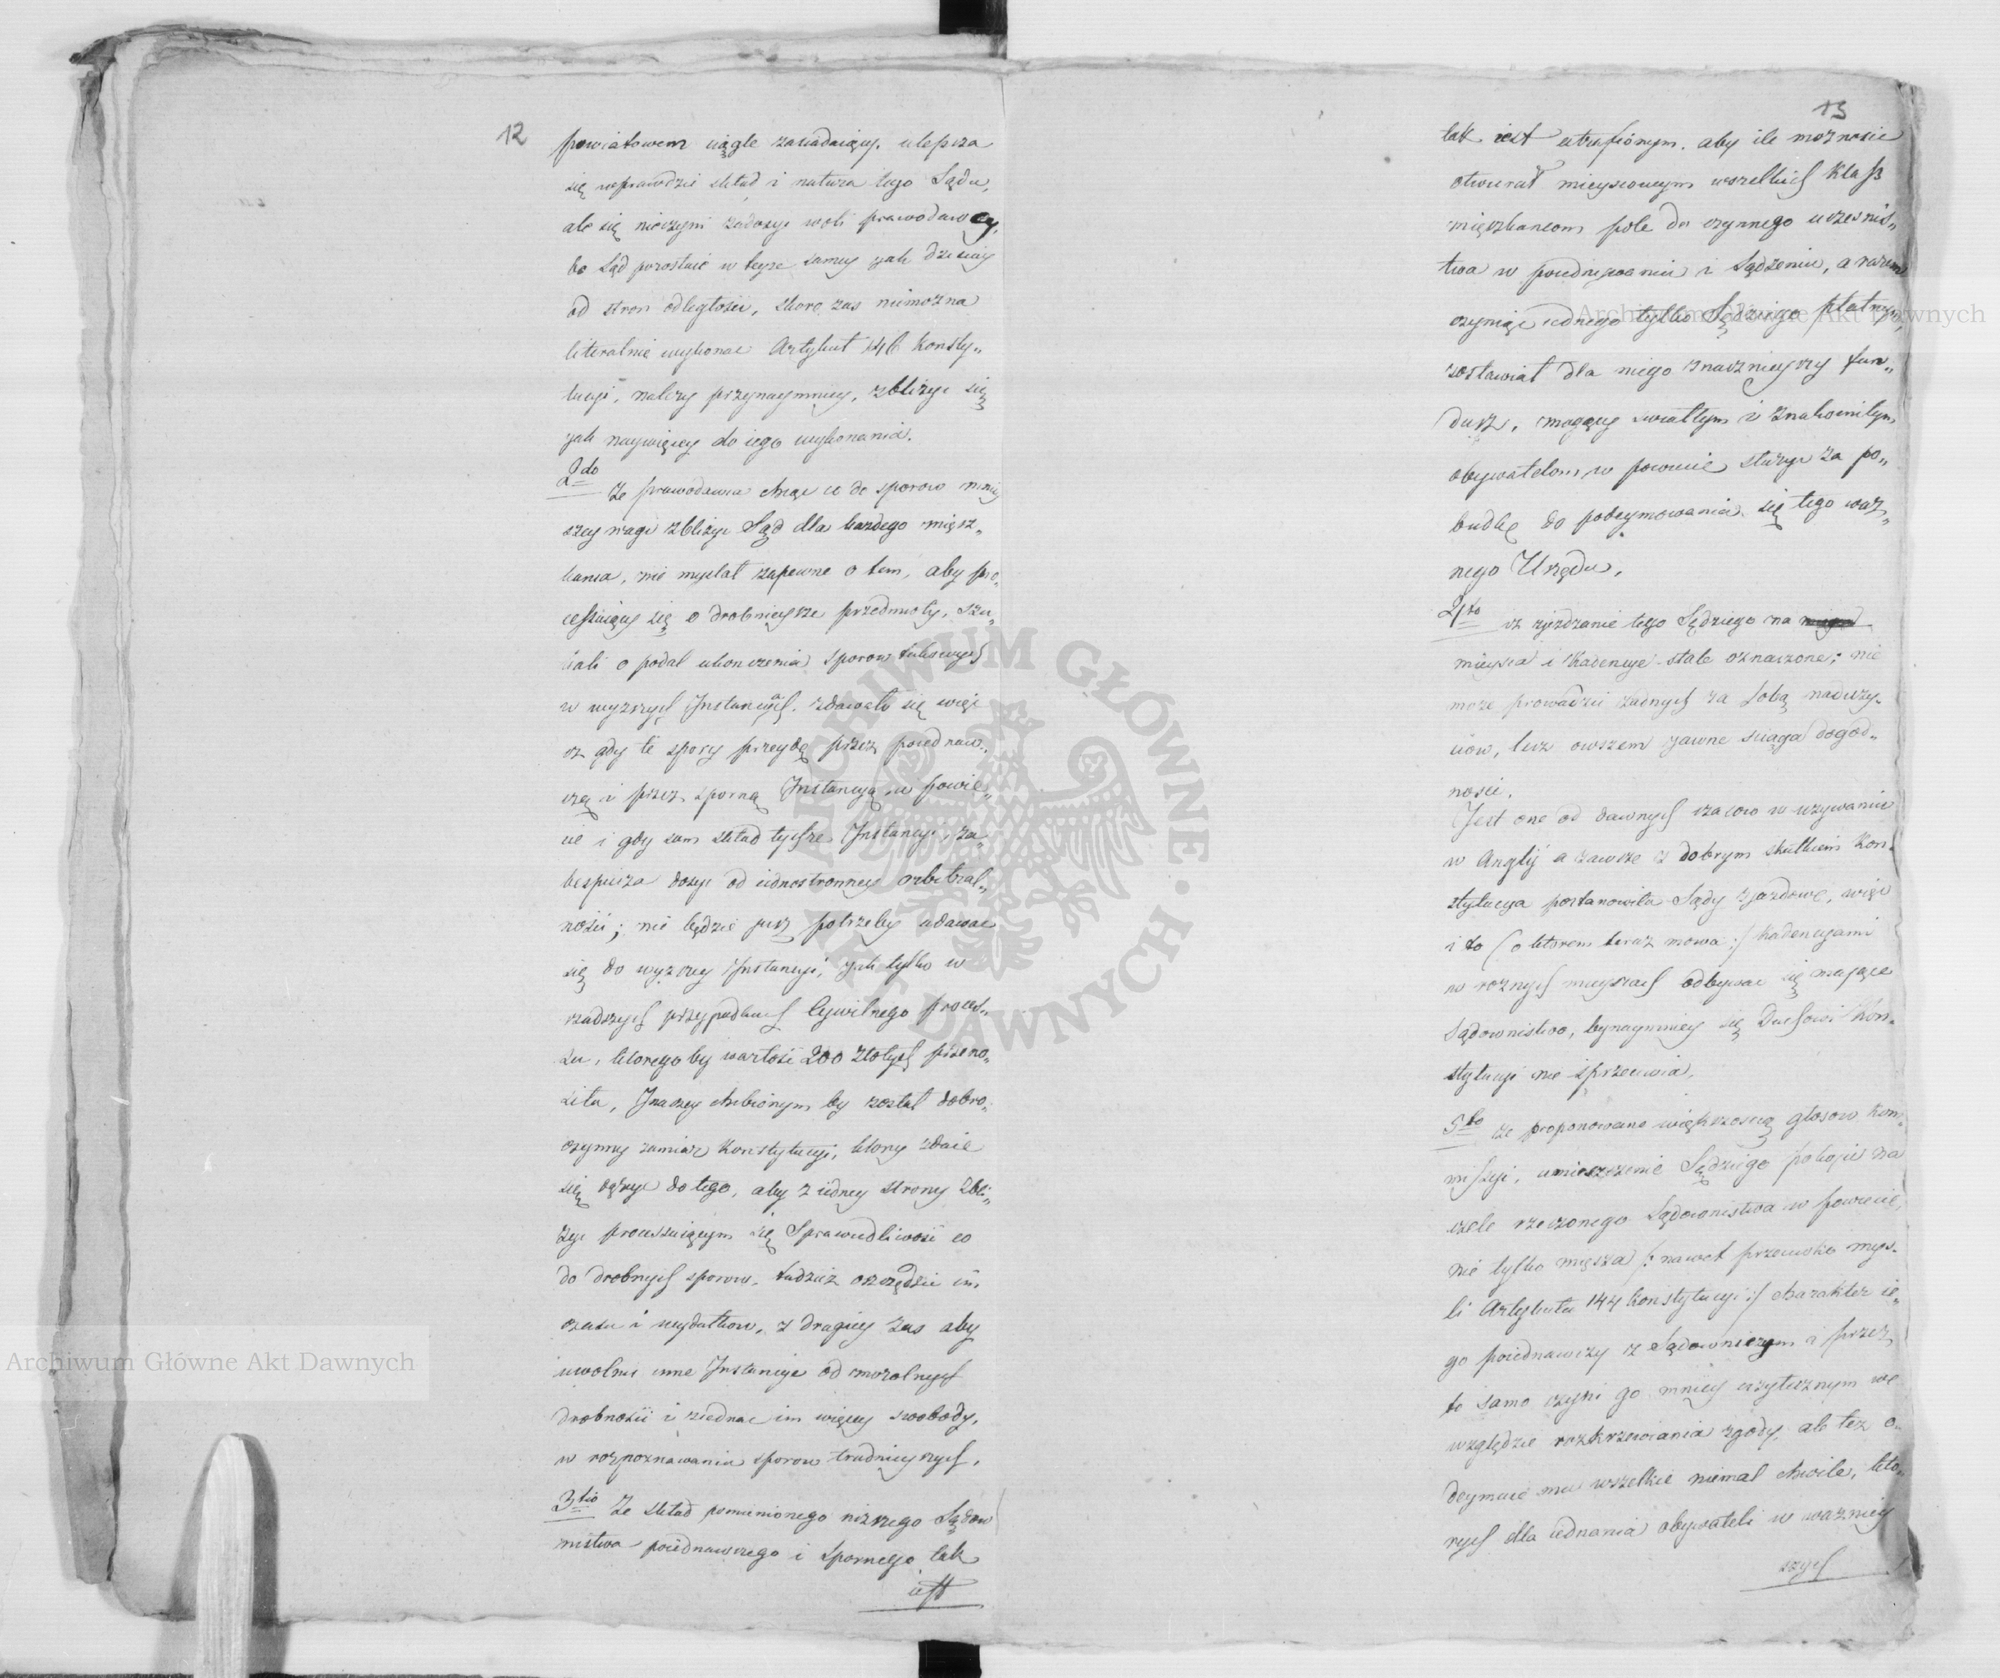 12
powiatowem ciągle zasiadaiący. ulepsza
się wprawdzie skład i natura tego Sądu,
ale się nieczyni zadosyc woli prawodawcy,
bo Sąd pozostaie w teyze samey yak dzisiay
od stron odległosci, skoro zas niemozna
literalnie wykonac Artykuł 146 Konsty„
tucyi, nalezy przynaymniey, zblizyc się
yak naywięcey do iego wykonania.
2do ze prawodawca chcąc co do sporow mniey
szey wagi zblizyc Sąd dla kazdego miesz„
kanca, nie myslał zapewne o tem, aby pro„
cessuiący się o drobnieysze przedmioty, szu„
kali o podal ukonczenia sporow takowych
w wyzszych Instancyach. zdawało się więc
iz gdy te spory przeydą przez poiednaw„
czą i przez sporną Instancyą w powie„
cie i gdy sam skład tychze Instancyi, za„
bespiecza dosyc od iednostronney arbitral„
nosci; nie będzie juz potrzeby udawac
się do wyzszey Instancyi, yak tylko w
rzadszych przypadkach Cywilnego proces„
su, ktoregoby wartosc 200 złotych przeno„
siła, Inaczey chybionym by został dobro„
czynny zamiar Konstytucyi, ktory zdaie
się dązyc do tego, aby z iedney strony zbli„
zyc processuiącym się Sprawiedliwosc co
do drobnych sporow, tudziez oszczędzic im
czasu i wydatkow, z drugiey zas aby
uwolnic inne Instancye od mozolnych
drobnosci i ziednac im więcey swobody,
w rozpoznawaniu sporow trudnieyszych.
3tio Ze skład pomienionego nizszego Sądow
nictwa poiednawczego i Spornego tak
iest
13
tak iest utrafionym. aby ile moznosci
otwierał mieyscowym wszelkich Klass
mięszkancom pole do czynnego uczesnic„
twa w poiednywaniu i Sądzeniu, a razem
czyniąc iednego tylko Sędziego płatnym,
zostawiał dla niego znacznieyszy fun„
dusz, mogący swiatłym i znakomitym
obywatelom w powiecie słuzyc za po„
budkę do podeymowania się tego waz„
nego Urzędu.
4to iz ziezdzanie tego Sędziego na
mieysca i Kadencye stale oznaczone; nie
moze prowadzic zadnych za sobą naduzy„
ciow, lecz owszem yawne sciąga dogod„
nosci.
Jest one od dawnych czasow w uzywaniu
w Anglij a zawsze z dobrym skutkiem Kon„
stytucya postanowiła Sądy zjazdowe, więc
i to (o ktorem teraz mowa:/ kadencyami
w roznych mieyscach odbywac się maiące
Sądownictwo, bynaymniey się Duchowi Kon„
stytucyi nie sprzeciwia.
5to ze proponowane większoscią głosow Kom„
missyi, umieszczenie Sędziego pokoju na
czele rzeczonego Sądownictwa w powiecie,
nie tylko miesza /: nawet przeciwko mys„
li Artykułu 144 Konstytucyi :/ charakter ie„
go poiednawczy z Sądowniczym i przez
to samo czyni go mniey uzytecznym we
względzie rozkrzewiania zgody, ale tez o„
deymuie mu wszelkie niemal chwile, kto„
rych dla iednania obywateli w waznie
szych
Archiwum Główne Akt Dawnych
Archiwum Główne Akt Dawnych
ARCHIWUM GŁÓWNE · AKT DAWNYCH ·